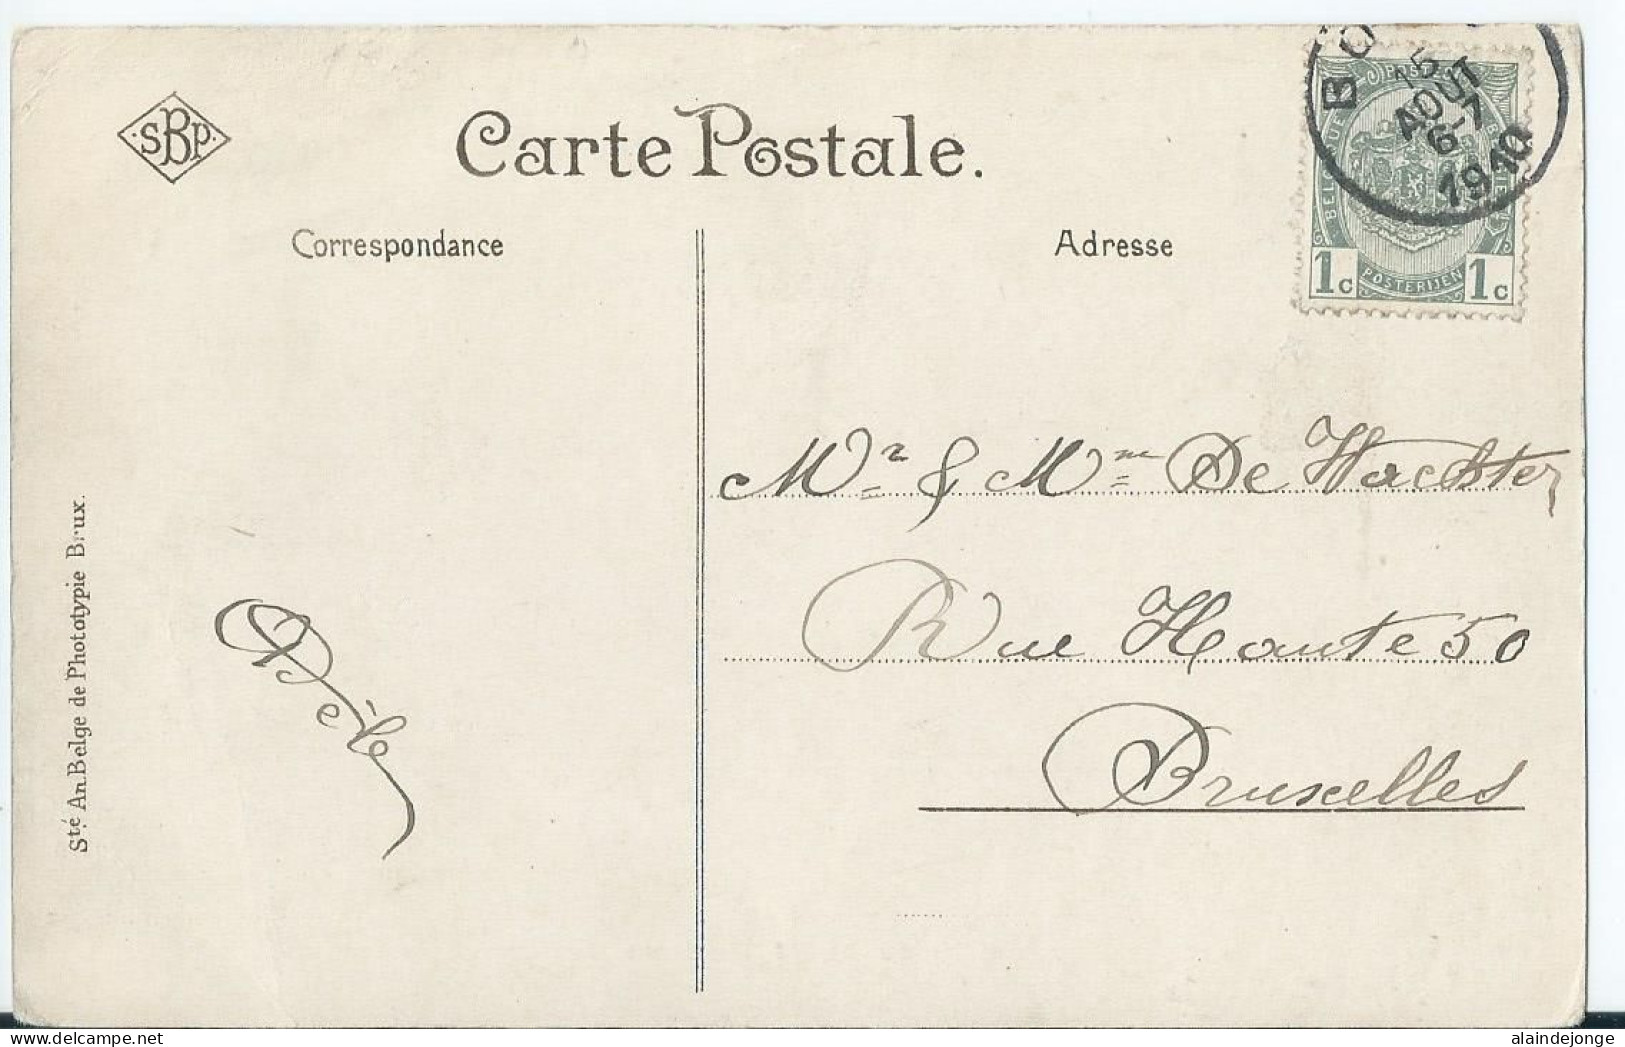 SBP
Carte Postale.
Correspondance
Adresse
15
AOUT
6-7
1910
POSTES
BELGIQUE
BELGIE
1c POSTERIJEN 1c
Mr & Mme De Wachter
Rue Haute 50
Bruxelles
Sté An. Belge de Phototypie Brux.
alaindejonge